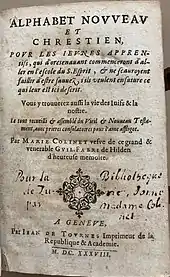 ALPHABET NOVVEAV
ET
CHRESTIEN,
POVR LES IEVNES APPREN-
tifs, qui d'oresenauant commenceront d'al-
ler en l'escole du S. Esprit, & ne sçauroyent
faillir d'estre sauuez, s'ils veulent ensuiure ce
qui leur est ici descrit.
Vous y trouuerez aussi la vie des Iuifs & la
nostre.
Le tout recueilli & assemblé du Vieil & Nouueau Testa-
ment, auec prieres consolatoires pour l'ame affligee.
Par MARIE COLINET vefve de ce grand &
venerable GVIL. FABRI de Hilden
d'heureuse memoire.
Pour la Bibliotheque
de Zu
par Madame Coli
net
A GENEVE,
Par IEAN DE TOVRNES Imprimeur de la
Republique & Academie.
M. DC. XXXVIII.